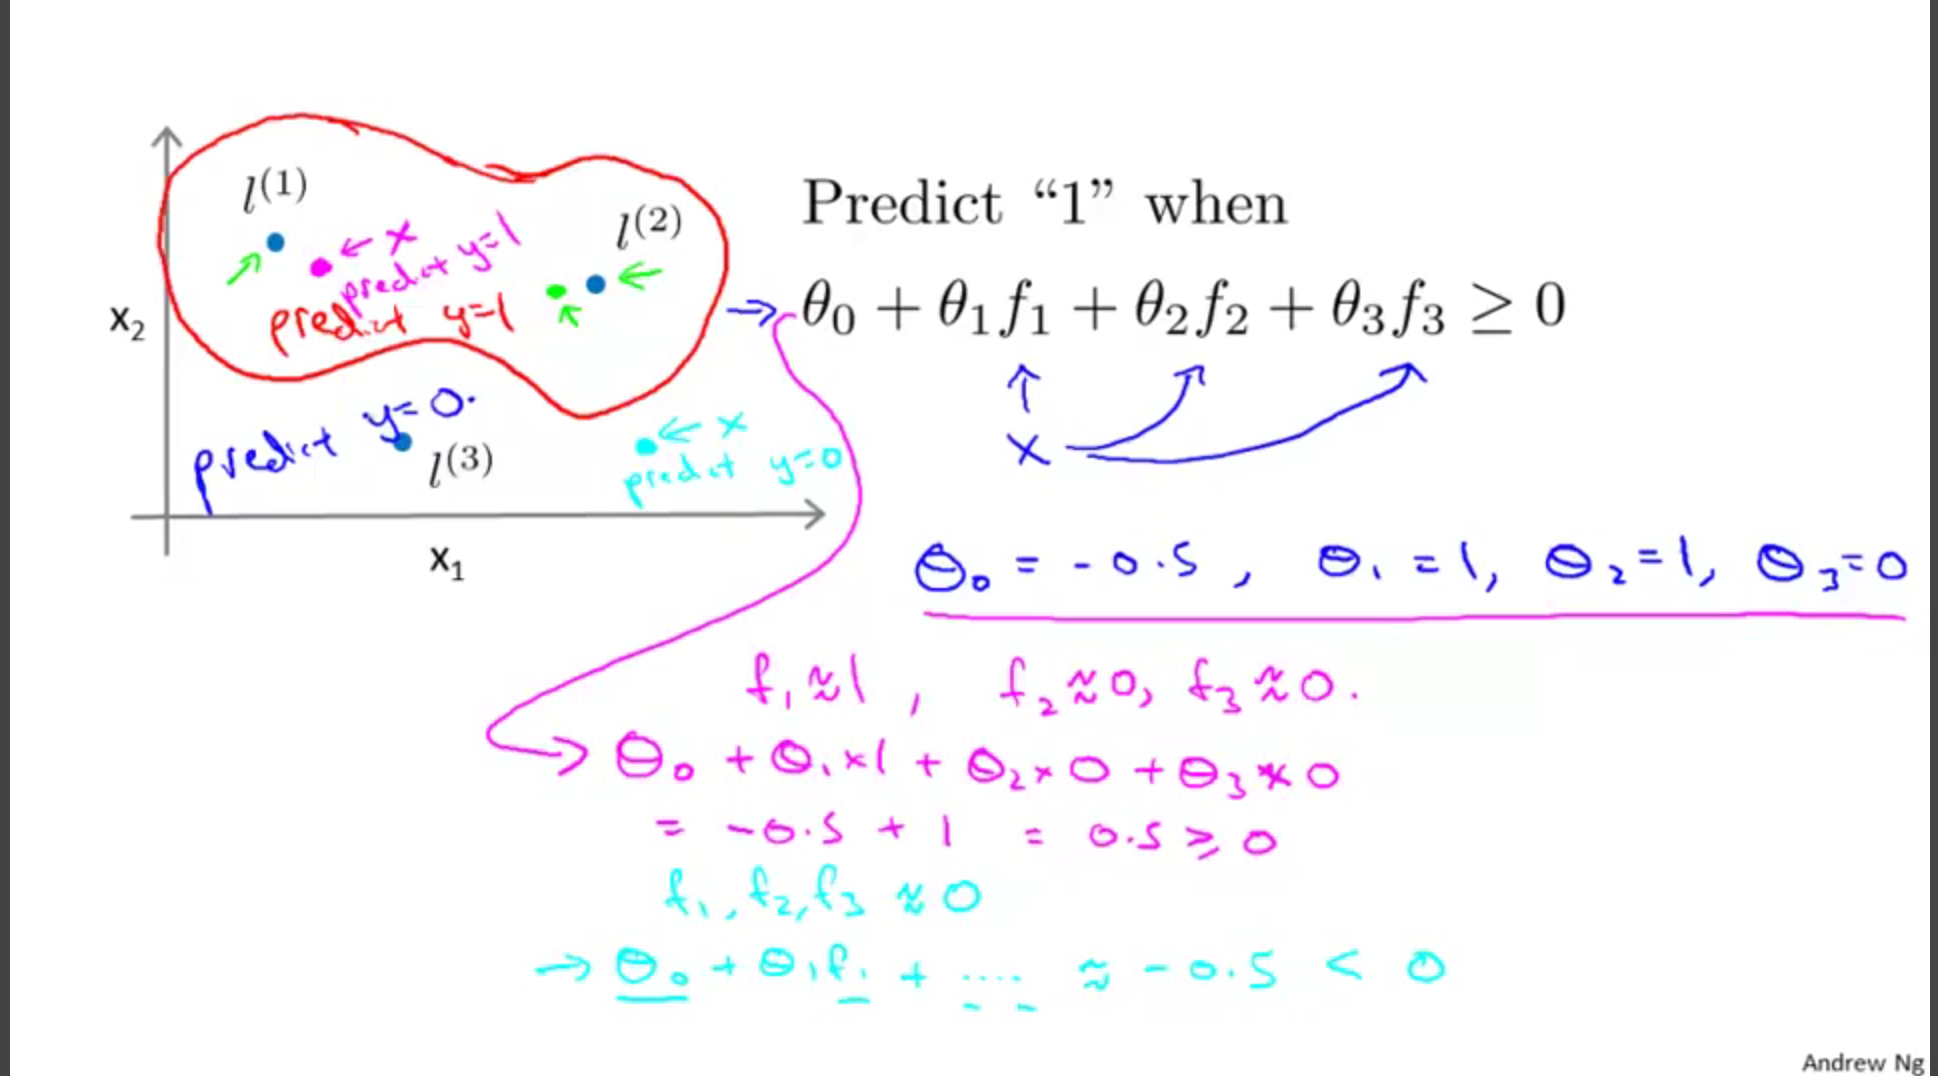 l^(1)
← x
predict y=1
l^(2)
predict y=1
x₂
predict y=0.
l^(3)
← x
predict y=0
x₁
Predict “1” when
→ θ₀ + θ₁f₁ + θ₂f₂ + θ₃f₃ ≥ 0
x
θ₀ = -0.5, θ₁ = 1, θ₂ = 1, θ₃ = 0
f₁ ≈ 1, f₂ ≈ 0, f₃ ≈ 0.
→ θ₀ + θ₁×1 + θ₂×0 + θ₃×0
= -0.5 + 1 = 0.5 ≥ 0
f₁, f₂, f₃ ≈ 0
→ θ₀ + θ₁f₁ + .... ≈ -0.5 < 0
Andrew Ng